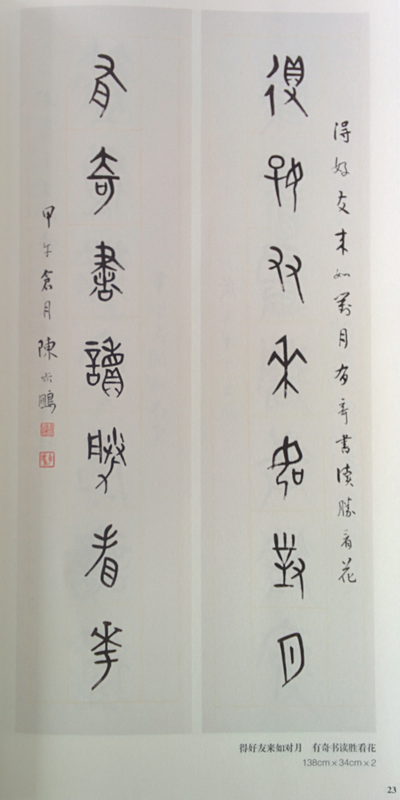 得好友来如對月有奇書读勝看花
得好友來如對月
有奇書讀勝看華
甲午倉月陳斯鵬
得好友来如对月　有奇书读胜看花
138cm×34cm×2
23